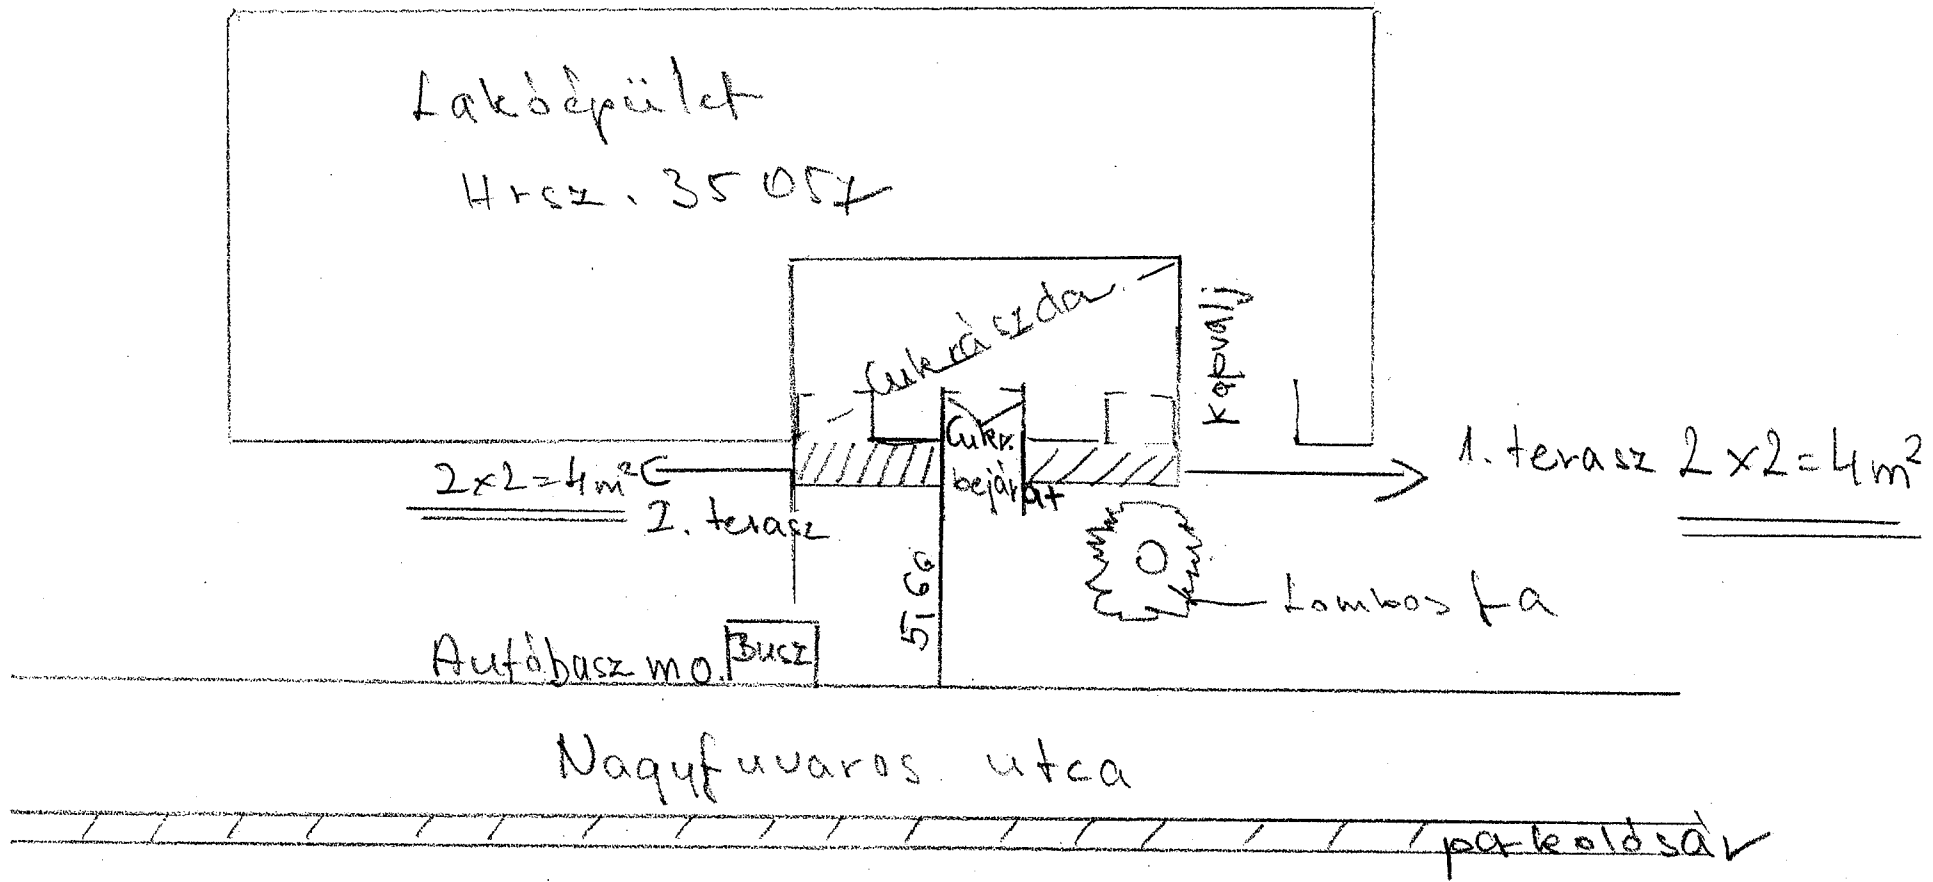 Lakóépület
Hrsz. 35057
Cukrászda
Kapualj
Cukr.
bejárat
2x2=4m²
2. terasz
1. terasz 2x2=4m²
5,60
Lombos fa
Autóbusz mo.
Busz
Nagyfuvaros utca
parkolósáv